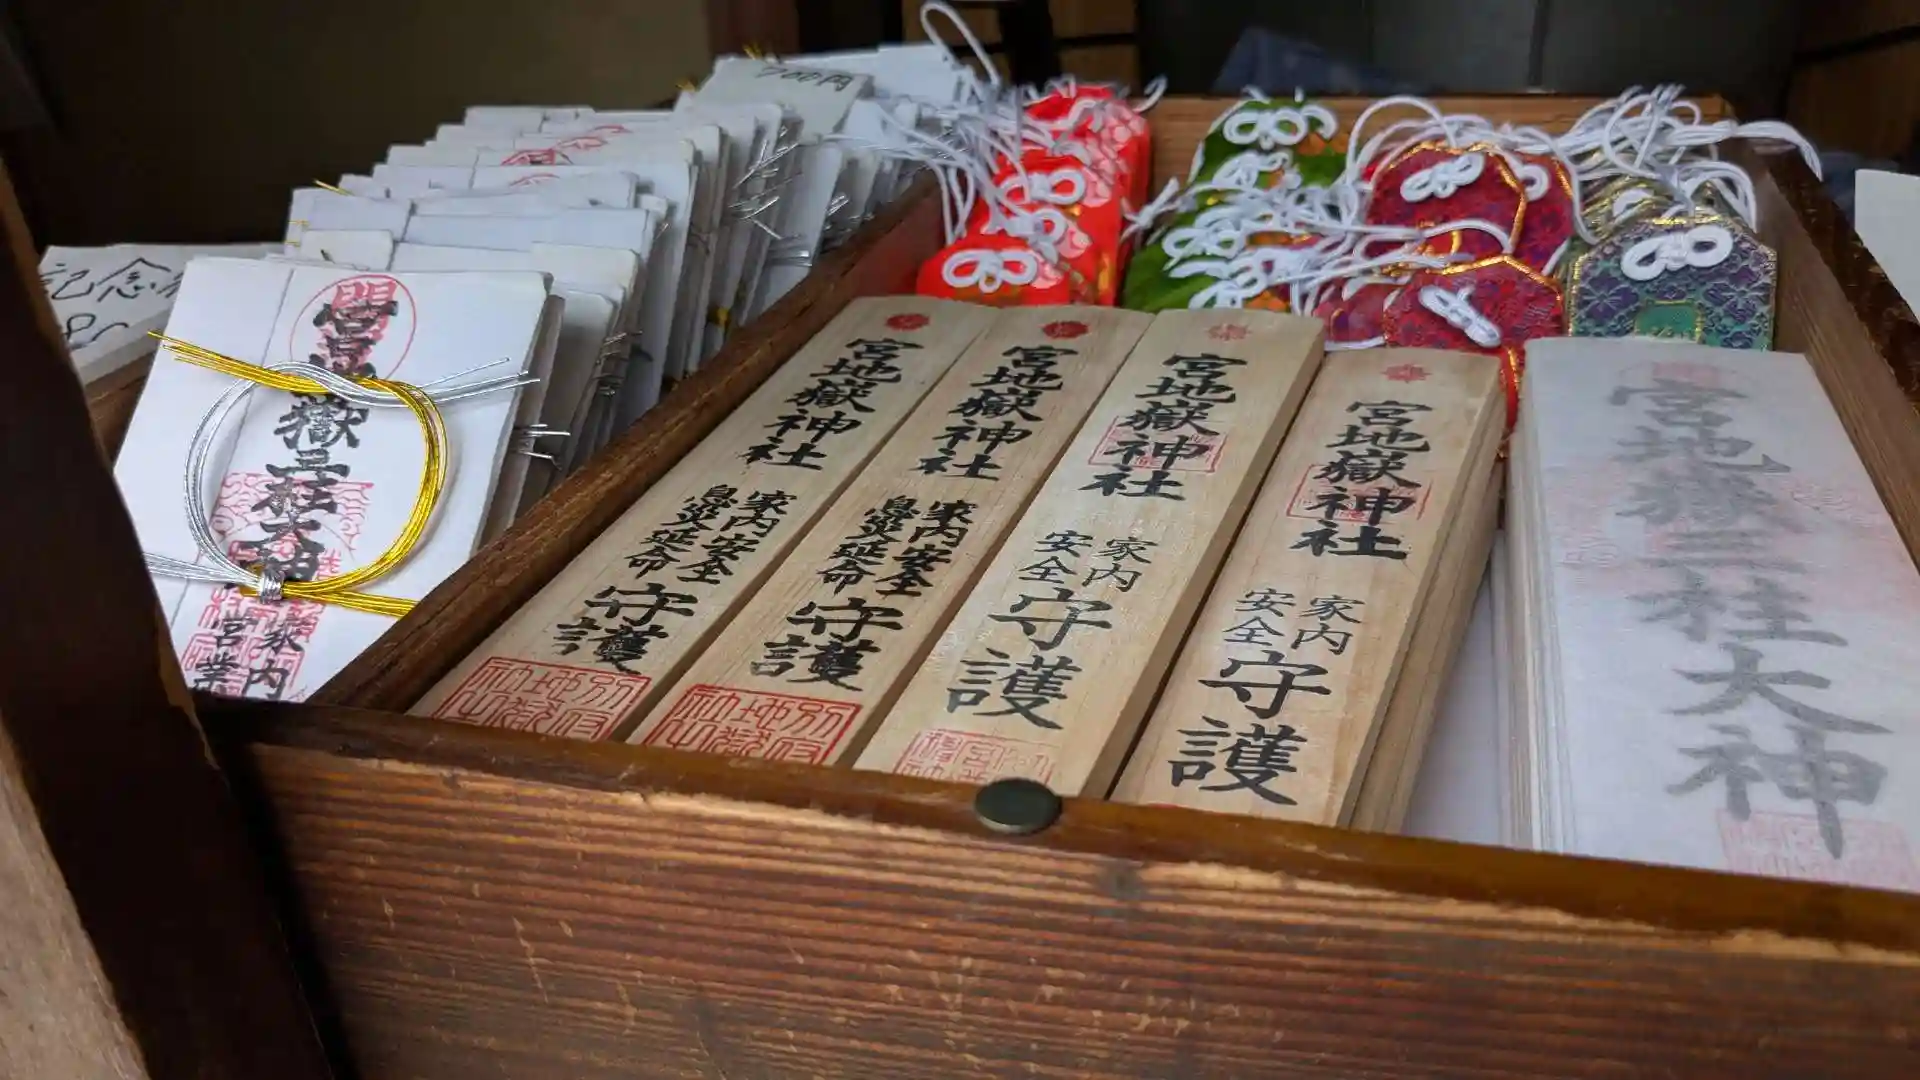 700円
記念
開
宮地嶽三柱大神
家内
営業
宮地嶽神社
家内安全
息災延命
守護
宮地嶽神社
家内安全
息災延命
守護
宮地嶽神社
家内
安全
守護
宮地嶽神社
家内
安全
守護
宮地嶽三柱大神